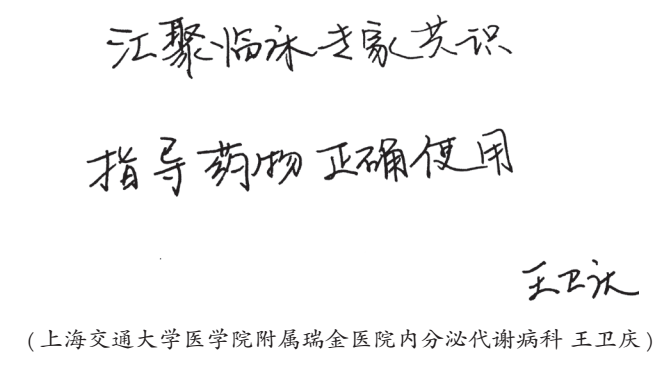 汇聚临床专家共识
指导药物正确使用
王卫庆
(上海交通大学医学院附属瑞金医院内分泌代谢病科 王卫庆)